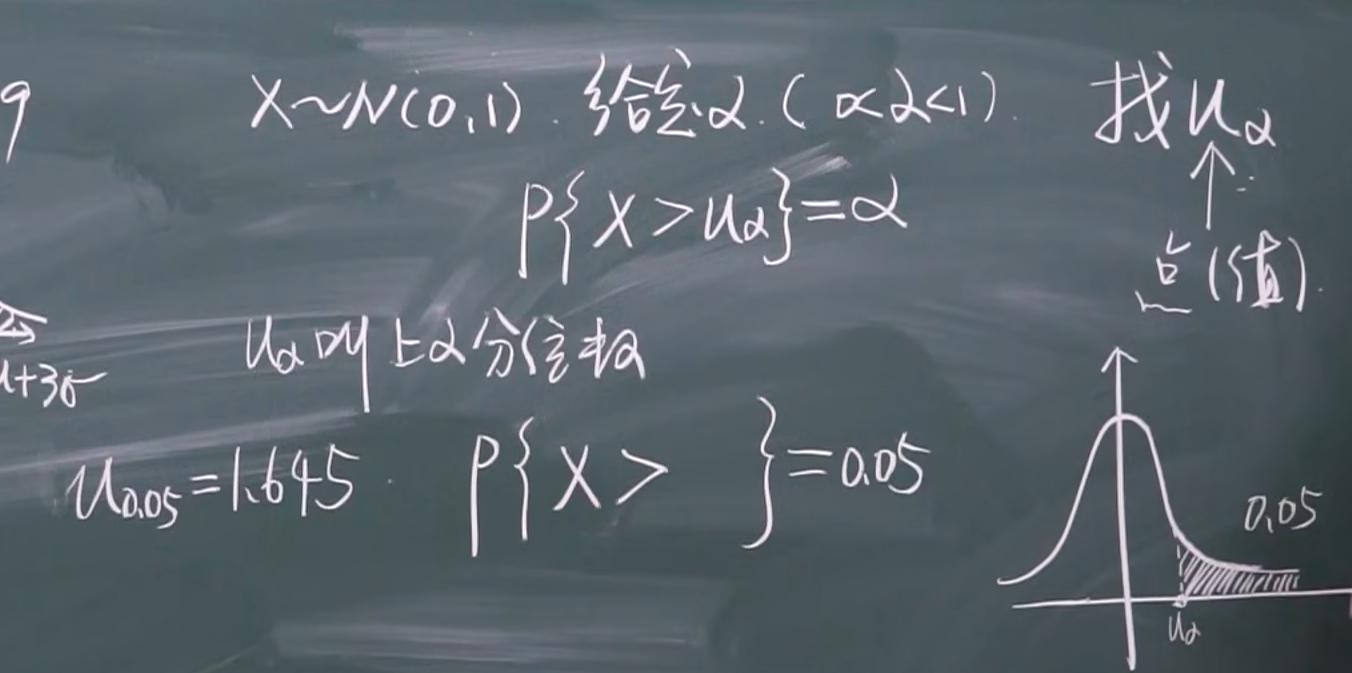 9 X~N(0,1). 给定α.(0<α<1). 找uα
P{X>uα}=α
点(值).
uα 叫上α分位数
μ+3σ
u0.05=1.645. P{X> }=0.05
0.05
uα